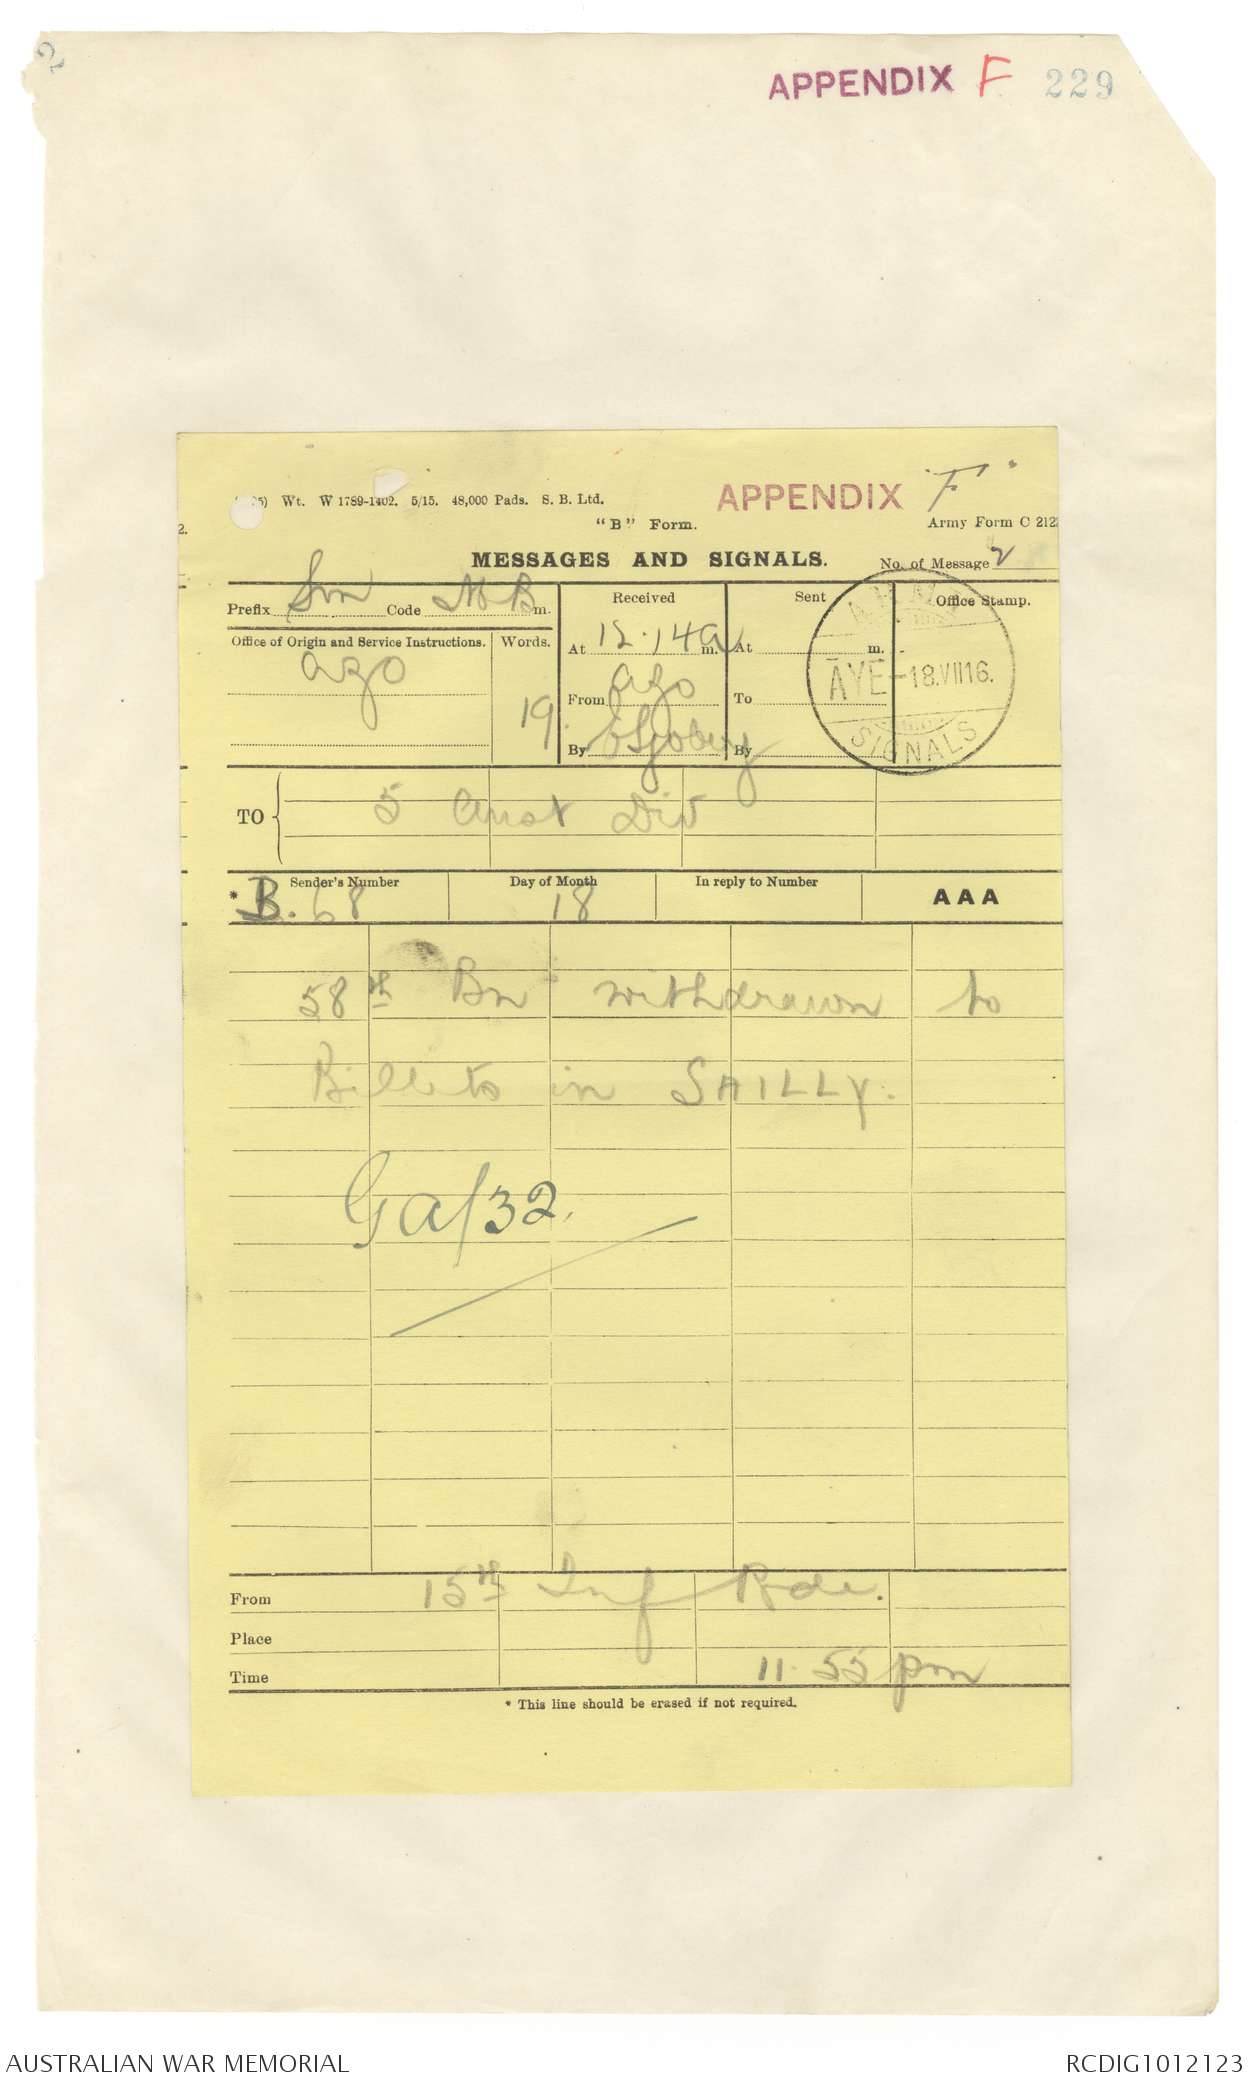 2
APPENDIX F 229
5) Wt. W 1789-1402. 5/15. 48,000 Pads. S. B. Ltd. APPENDIX "F"
2. "B" Form. Army Form C 212
MESSAGES AND SIGNALS. No. of Message 2
Prefix Sm Code MB m. Received Sent Office Stamp.
Office of Origin and Service Instructions. Words. At 12.14 a m. At m.
azo 19 From azo To
By By
AYE 18.VII16.
SIGNALS
TO 5 Aust Div
* Sender's Number Day of Month In reply to Number AAA
B. 68 18
58th Bn withdrawn to
Billets in SAILLY.
Ga/32.
From 15th Inf Bde.
Place
Time 11.55 pm
* This line should be erased if not required.
AUSTRALIAN WAR MEMORIAL RCDIG1012123